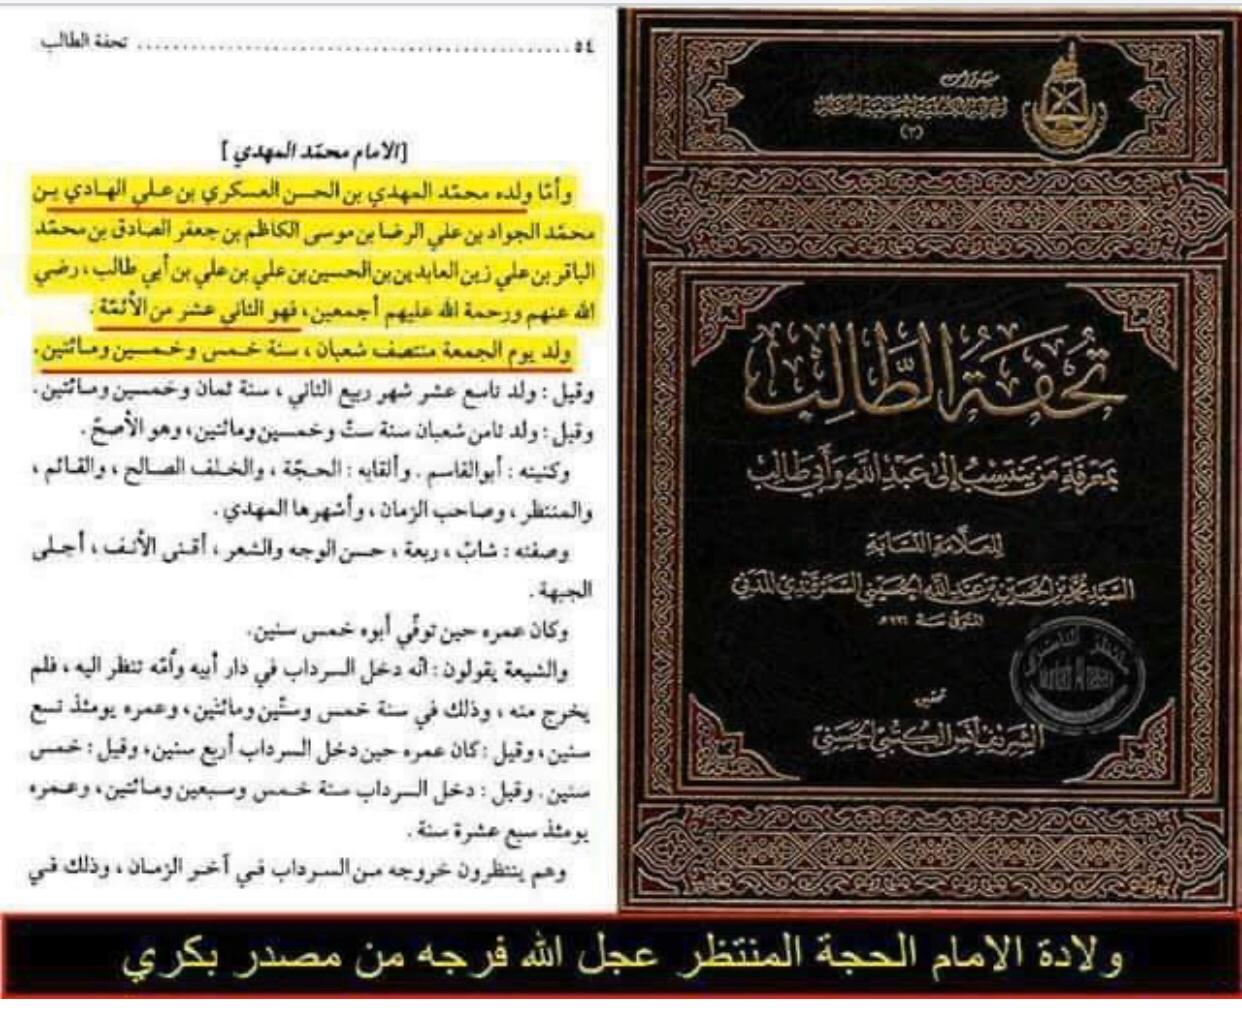 ٥٤ ........ تحفة الطالب
[الامام محمّد المهدي]
وأمّا ولده محمّد المهدي بن الحسن العسكري بن علي الهادي بن
محمّد الجواد بن علي الرضا بن موسى الكاظم بن جعفر الصادق بن محمّد
الباقر بن علي زين العابدين بن الحسين بن علي بن علي بن أبي طالب، رضي
الله عنهم ورحمة الله عليهم أجمعين، فهو الثاني عشر من الأئمّة.
ولد يوم الجمعة منتصف شعبان، سنة خمس وخمسين ومائتين.
وقيل: ولد تاسع عشر شهر ربيع الثاني، سنة ثمان وخمسين ومائتين.
وقيل: ولد ثامن شعبان سنة ستّ وخمسين ومائتين، وهو الأصحّ.
وكنيته: أبوالقاسم. وألقابه: الحجّة، والخلف الصالح، والقائم،
والمنتظر، وصاحب الزمان، وأشهرها المهدي.
وصفته: شابّ، ربعة، حسن الوجه والشعر، أقنى الأنف، أجلى
الجبهة.
وكان عمره حين توفّي أبوه خمس سنين.
والشيعة يقولون: انّه دخل السرداب في دار أبيه وأمّه تنظر اليه، فلم
يخرج منه، وذلك في سنة خمس وستّين ومائتين، وعمره يومئذ تسع
سنين، وقيل: كان عمره حين دخل السرداب أربع سنين، وقيل: خمس
سنين. وقيل: دخل السرداب سنة خمس وسبعين ومائتين، وعمره
يومئذ سبع عشرة سنة.
وهم ينتظرون خروجه من السرداب في آخر الزمان، وذلك في
منشورات
(٢)
تحفة الطالب
بمعرفة من ينتسب إلى عبد الله وأبي طالب
للعلامة النسابة
السيد محمد بن الحسين بن عبد الله الحسيني السمرقندي المدني
المتوفى سنة
تحقيق
الشريف أنس الكتبي الحسني
ولادة الامام الحجة المنتظر عجل الله فرجه من مصدر بكري